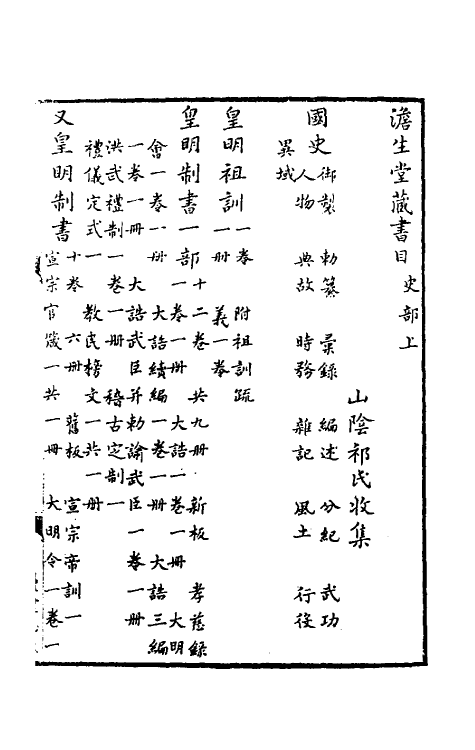 澹生堂藏書目 史部上
山陰祁氏收集
國史 御製 勅纂 彙錄 編述 分紀 武功
人物 典故 時務 雜記 風土 行役
異域
皇明祖訓 一卷 附祖訓疏
一冊 義一卷
皇明制書一部 十二卷 共九冊 新板 孝慈錄
一卷一冊 大誥一卷一冊 大明
會一卷一冊 大誥續編一卷一冊 大誥三編
一卷一冊 大誥武臣并勅諭武臣一卷一冊
洪武禮制一卷一冊 稽古定制一
禮儀定式一 教民榜文一共一冊
又皇明制書 十卷 六冊 舊板 宣宗帝訓一
宣宗官箴一共一冊 大明令一卷一